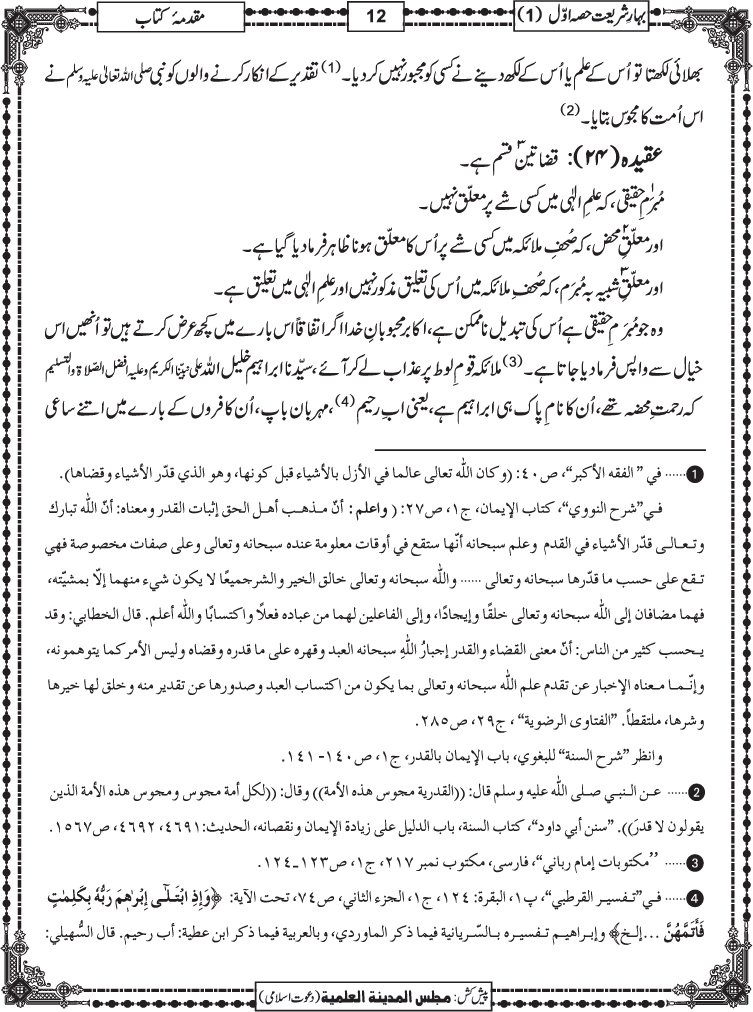 بہارِ شریعت حصہ اوّل (1)
12
مقدمۂ کتاب
بھلائی لکھتا تو اُس کے علم یا اُس کے لکھ دینے نے کسی کو مجبور نہیں کر دیا۔ (1) تقدیر کے انکار کرنے والوں کو نبی صلی اللہ تعالیٰ علیہ وسلم نے
اس اُمت کا مجوس بتایا۔ (2)
عقیدہ (۲۴): قضا تین۳ قسم ہے۔
مُبرَم۱ِ حقیقی، کہ علمِ الٰہی میں کسی شے پر معلّق نہیں۔
اور معلّقِ۲ محض، کہ صُحفِ ملائکہ میں کسی شے پر اُس کا معلّق ہونا ظاہر فرما دیا گیا ہے۔
اور معلّقِ۳ شبیہ بہ مُبرَم، کہ صُحفِ ملائکہ میں اُس کی تعلیق مذکور نہیں اور علمِ الٰہی میں تعلیق ہے۔
وہ جو مُبرَمِ حقیقی ہے اُس کی تبدیل ناممکن ہے، اکابر محبوبانِ خدا اگر اتفاقاً اس بارے میں کچھ عرض کرتے ہیں تو اُنھیں اس
خیال سے واپس فرما دیا جاتا ہے۔ (3) ملائکہ قومِ لوط پر عذاب لے کر آئے، سیّدنا ابراہیم خلیل اللہ علی نبیّنا الکریم وعلیہ افضل الصّلاۃ والتسلیم
کہ رحمتِ محضہ تھے، اُن کا نامِ پاک ہی ابراہیم ہے، یعنی ابِ رحیم (4)، مہربان باپ، اُن کافروں کے بارے میں اتنے ساعی
1...... في ”الفقه الأكبر“، ص٤٠: (وكان الله تعالى عالما في الأزل بالأشياء قبل كونها، وهو الذي قدّر الأشياء وقضاها).
في”شرح النووي“، كتاب الإيمان، ج١، ص٢٧: (واعلم: أنّ مذهب أهل الحق إثبات القدر ومعناه: أنّ الله تبارك
وتعالى قدّر الأشياء في القدم وعلم سبحانه أنّها ستقع في أوقات معلومة عنده سبحانه وتعالى وعلى صفات مخصوصة فهي
تقع على حسب ما قدّرها سبحانه وتعالى ...... والله سبحانه وتعالى خالق الخير والشر جميعًا لا يكون شيء منهما إلّا بمشيّته،
فهما مضافان إلى الله سبحانه وتعالى خلقًا وإيجادًا، وإلى الفاعلين لهما من عباده فعلاً واكتسابًا والله أعلم. قال الخطابي: وقد
يحسب كثير من الناس: أنّ معنى القضاء والقدر إجبارُ اللهِ سبحانه العبد وقهره على ما قدره وقضاه وليس الأمر كما يتوهمونه،
وإنّما معناه الإخبار عن تقدم علم الله سبحانه وتعالى بما يكون من اكتساب العبد وصدورها عن تقدير منه وخلق لها خيرها
وشرها، ملتقطاً. ”الفتاوى الرضوية“، ج٢٩، ص٢٨٥.
وانظر ”شرح السنة“ للبغوي، باب الإيمان بالقدر، ج١، ص١٤٠-١٤١.
2...... عن النبي صلى الله عليه وسلم قال: ((القدرية مجوس هذه الأمة)) وقال: ((لكل أمة مجوس ومجوس هذه الأمة الذين
يقولون لا قدرَ)). ”سنن أبي داود“، كتاب السنة، باب الدليل على زيادة الإيمان ونقصانه، الحديث: ٤٦٩١، ٤٦٩٢، ص١٥٦٧.
3...... ”مكتوبات إمام رباني“، فارسی، مكتوب نمبر ٢١٧، ج١، ص١٢٣-١٢٤.
4...... في”تفسير القرطبي“، پ١، البقرة: ١٢٤، ج١، الجزء الثاني، ص٧٤، تحت الآية: ﴿وَاِذِ ابْتَلٰۤى اِبْرٰهٖمَ رَبُّهٗ بِكَلِمٰتٍ
فَاَتَمَّهُنَّ ...إلخ﴾ وإبراهيم تفسيره بالسّريانية فيما ذكر الماوردي، وبالعربية فيما ذكر ابن عطية: أب رحيم. قال السُّهيلي:
پیش کش: مجلس المدینة العلمیة (دعوت اسلامی)